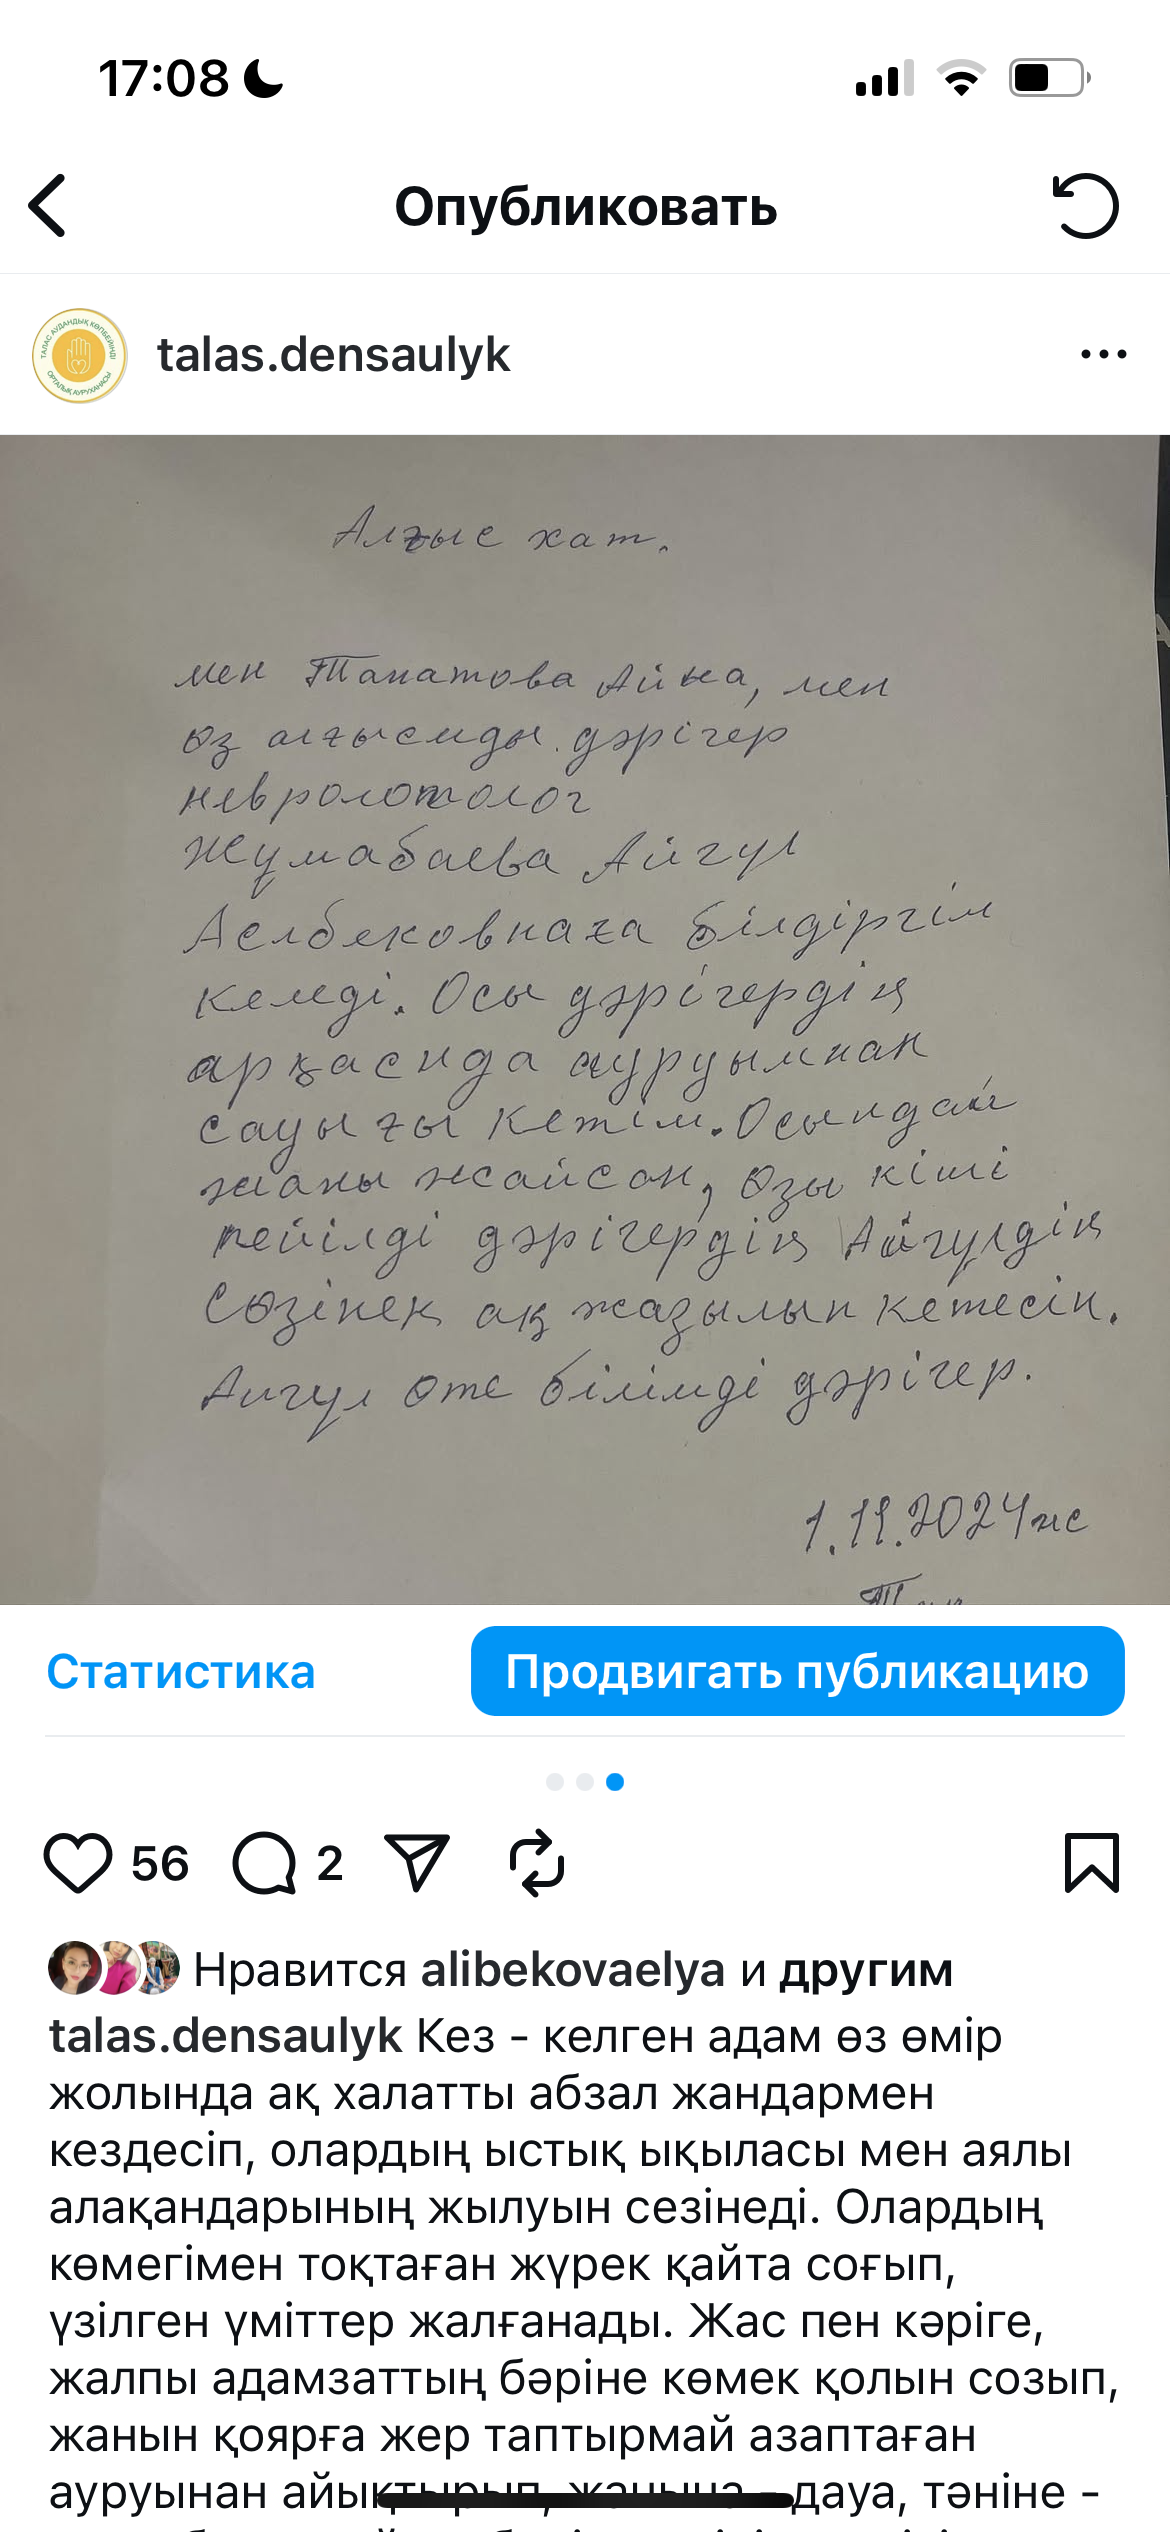 17:08
Опубликовать
ТАЛАС АУДАНДЫҚ КӨПБЕЙІНДІ
ОРТАЛЫҚ АУРУХАНАСЫ
talas.densaulyk
Алғыс хат.
мен Танатова Айна, мен
өз алғысмды дәрігер
невролотолог
Жұмабаева Айгүл
Аселбековнаға білдіргім
келеді. Осы дәрігердің
арқаснда ауруымнан
сауығы кетім. Осындай
жаны жайсон, озы кіші
пейілді дәрігердің Айгүлдің
Сөзінен ақ жазылып кетесің.
Аигүл өте білімді дәрігер.
1.11.2024 же
Тан
Статистика
Продвигать публикацию
56 2
Нравится alibekovaelya и другим
talas.densaulyk Кез - келген адам өз өмір
жолында ақ халатты абзал жандармен
кездесіп, олардың ыстық ықыласы мен аялы
алақандарының жылуын сезінеді. Олардың
көмегімен тоқтаған жүрек қайта соғып,
үзілген үміттер жалғанады. Жас пен кәріге,
жалпы адамзаттың бәріне көмек қолын созып,
жанын қоярға жер таптырмай азаптаған
ауруынан айықтырып, жанына - дауа, тәніне -